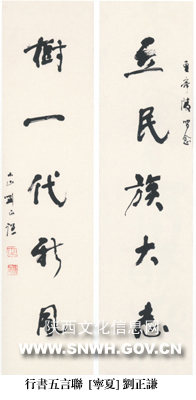 立民族大志
樹一代新風
陕西文化信息网
WWW.SNWH.GOV.CN
行書五言聯 [寧夏] 劉正謙